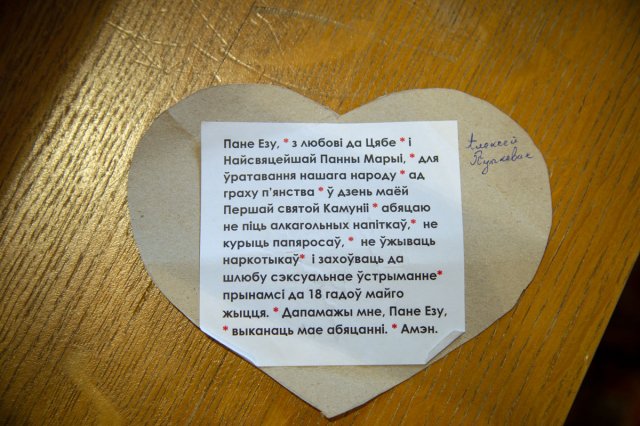 Пане Езу, * з любові да Цябе * і
Найсвяцейшай Панны Марыі, * для
ўратавання нашага народу * ад
граху п'янства * ў дзень маёй
Першай святой Камуніі * абяцаю
не піць алкагольных напіткаў, * не
курыць папяросаў, * не ўжываць
наркотыкаў* і захоўваць да
шлюбу сэксуальнае ўстрыманне*
прынамсі да 18 гадоў майго
жыцця. * Дапамажы мне, Пане Езу,
* выканаць мае абяцанні. * Амэн.
Алексей